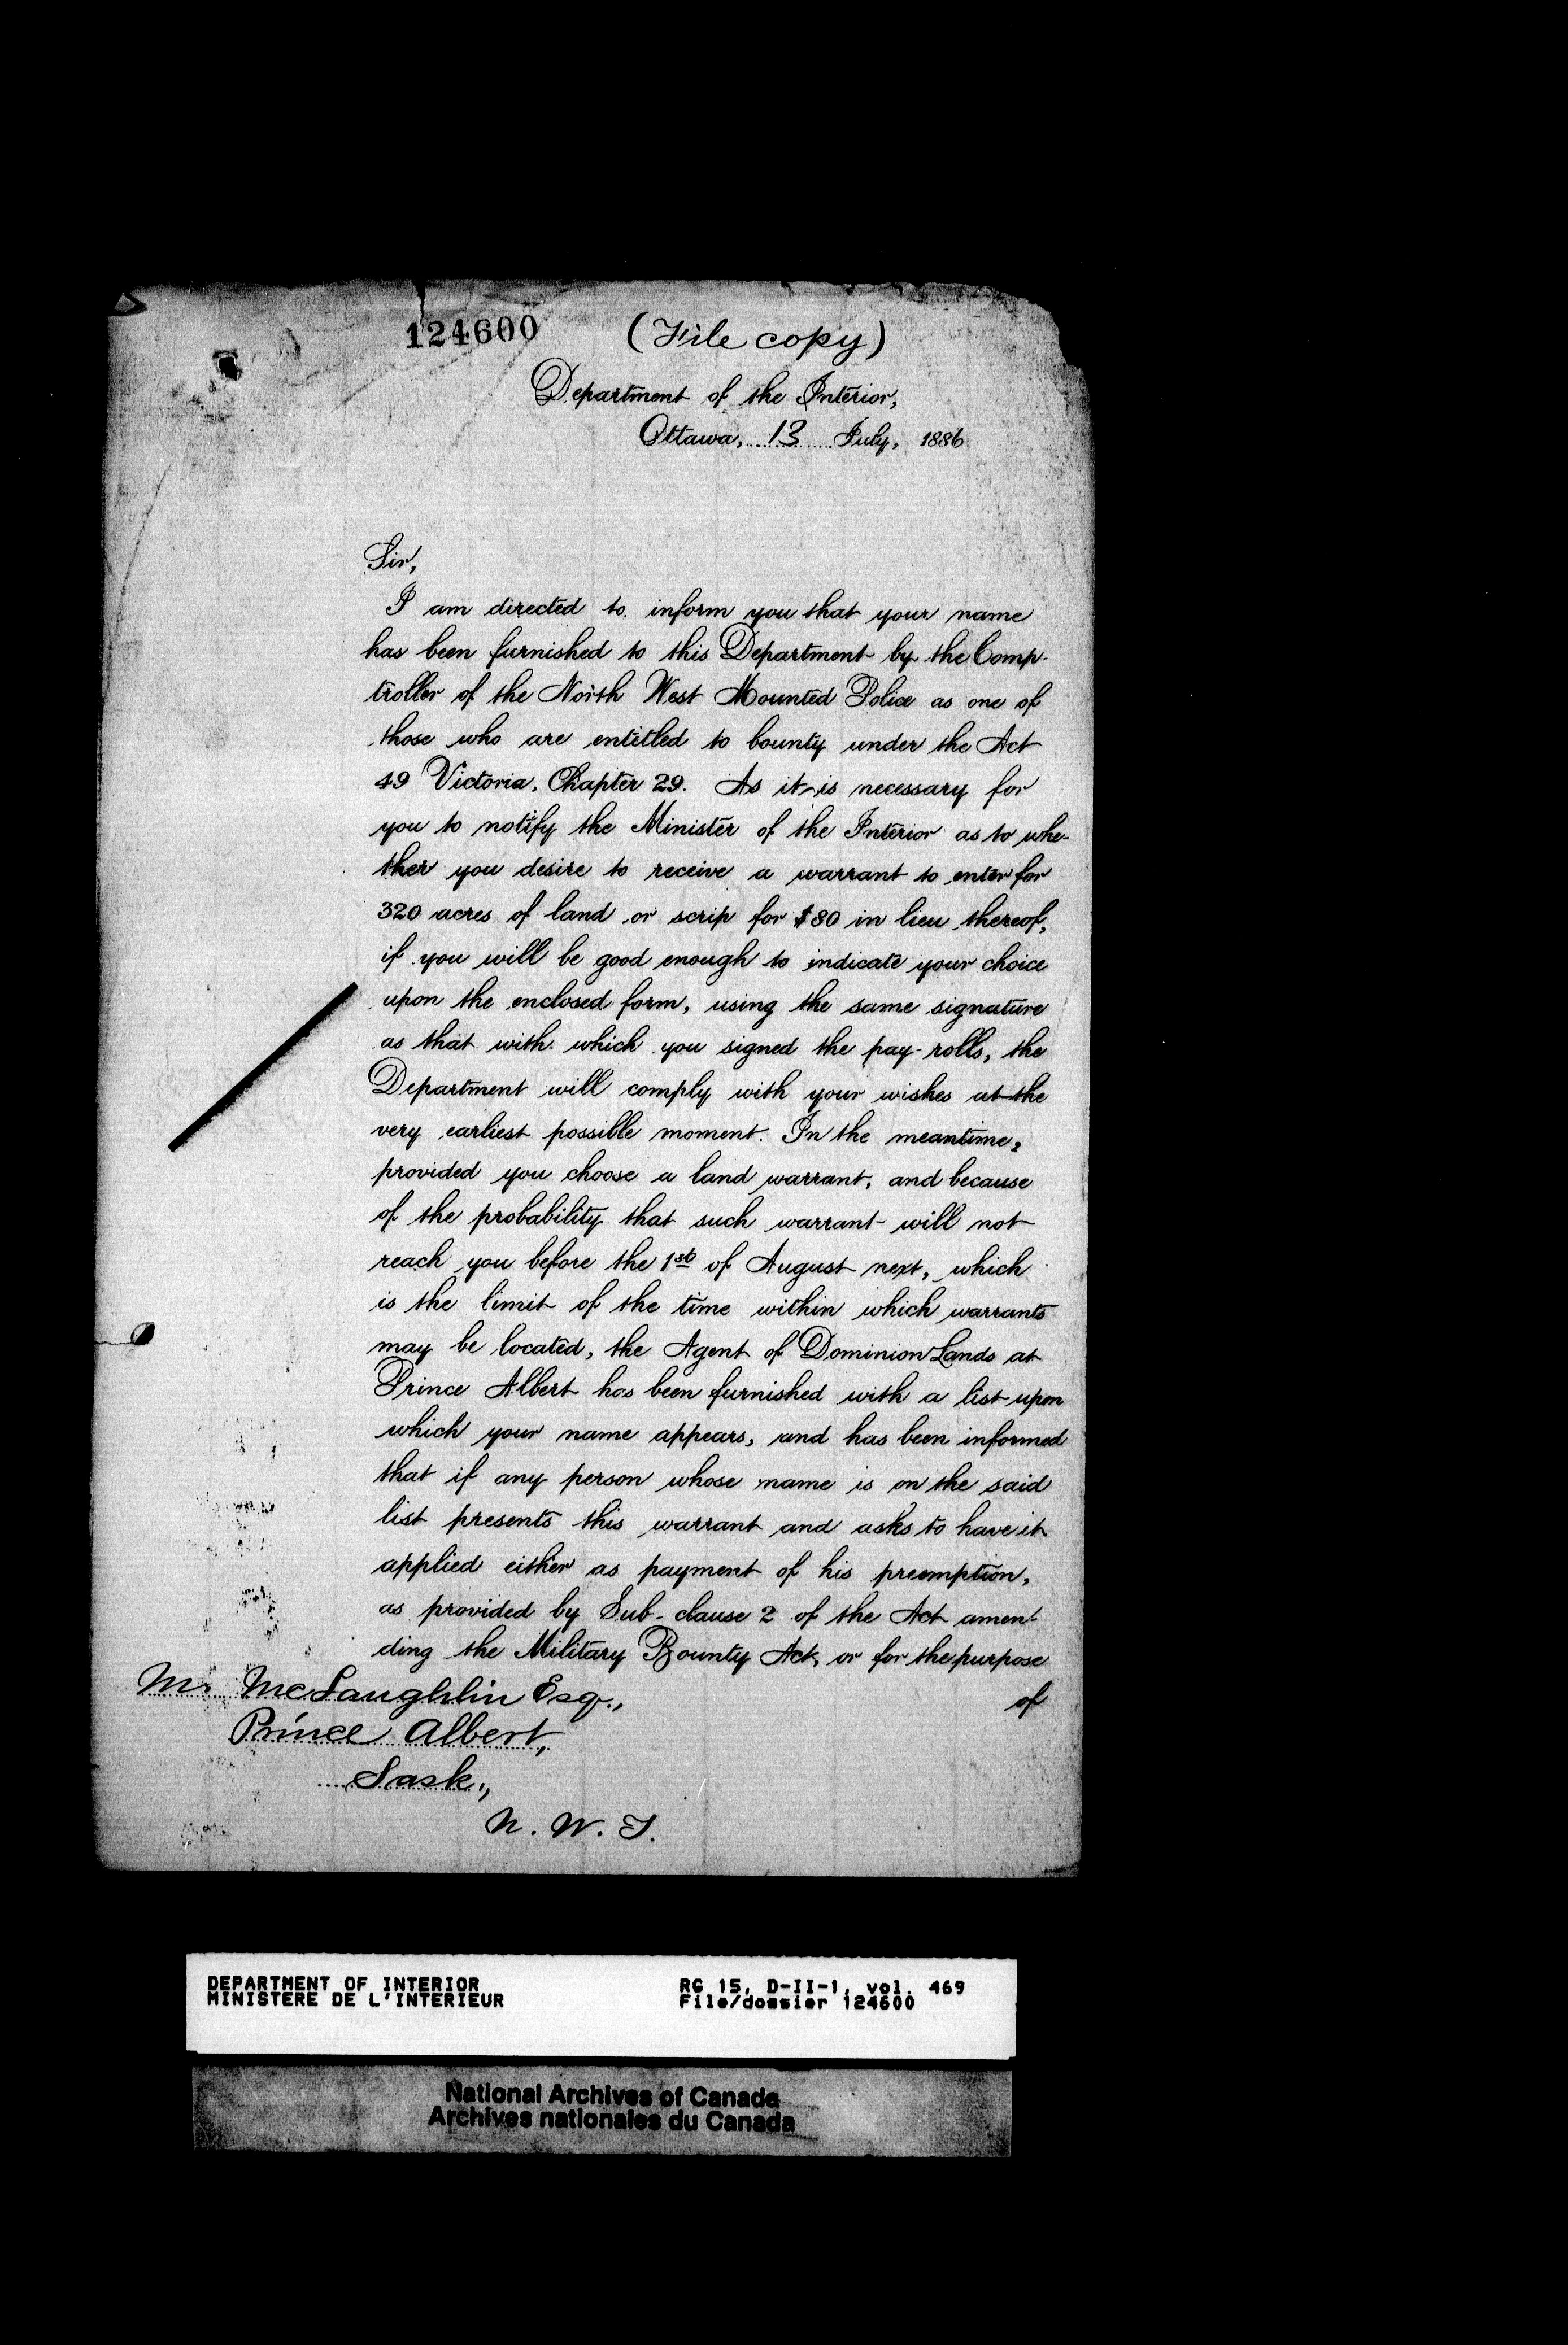 124600 (File copy)
Department of the Interior,
Ottawa, 13 July, 1886
Sir,
I am directed to inform you that your name
has been furnished to this Department by the Comp-
troller of the North West Mounted Police as one of
those who are entitled to bounty under the Act
49 Victoria, Chapter 29. As it is necessary for
you to notify the Minister of the Interior as to whe-
ther you desire to receive a warrant to enter for
320 acres of land or scrip for $80 in lieu thereof,
if you will be good enough to indicate your choice
upon the enclosed form, using the same signature
as that with which you signed the pay-rolls, the
Department will comply with your wishes at the
very earliest possible moment. In the meantime,
provided you choose a land warrant, and because
of the probability that such warrant will not
reach you before the 1st of August next, which
is the limit of the time within which warrants
may be located, the Agent of Dominion Lands at
Prince Albert has been furnished with a list upon
which your name appears, and has been informed
that if any person whose name is on the said
list presents this warrant and asks to have it
applied either as payment of his preemption,
as provided by Sub-clause 2 of the Act amen-
ding the Military Bounty Act, or for the purpose
of
M. McLaughlin Esq.,
Prince Albert,
Sask.,
N. W. T.
DEPARTMENT OF INTERIOR RG 15, D-II-1, vol. 469
MINISTERE DE L'INTERIEUR File/dossier 124600
National Archives of Canada
Archives nationales du Canada